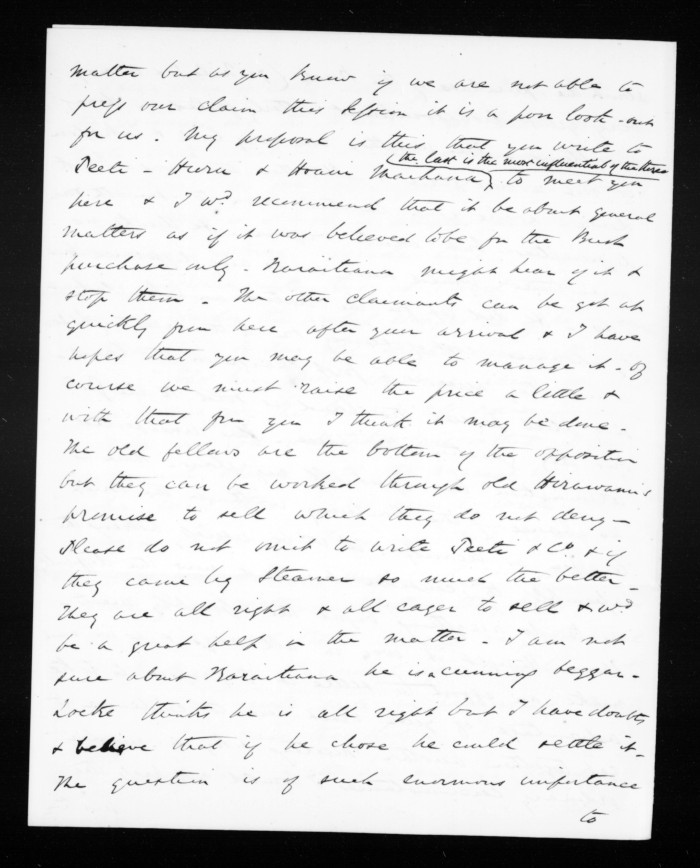 matter but as you know if we are not able to
press our claim this session it is a poor look-out
for us. My proposal is this, that you write to
(the last is the most influential of the three)
Teete - Huru & Hoani Maihana to meet you
here & I wd. recommend that it be about general
matters as if it was believed to be for the Bush
purchase only. Karaitiana might hear of it &
stop them. The other claimants can be got at
quickly from here after your arrival & I have
hopes that you may be able to manage it. Of
course we must raise the price a little &
with that from you I think it may be done.
The old fellows are the bottom of the opposition
but they can be worked through old Hirawanu's
promise to sell which they do not deny -
Please do not omit to write Teete & Co. & if
they came by Steamer so much the better -
They are all right & all eager to sell & wd
be a great help in the matter - I am not
sure about Karaitiana he is a cunning beggar -
Locke thinks he is all right but I have doubts
& believe that if he chose he could settle it -
The question is of such enormous importance
to